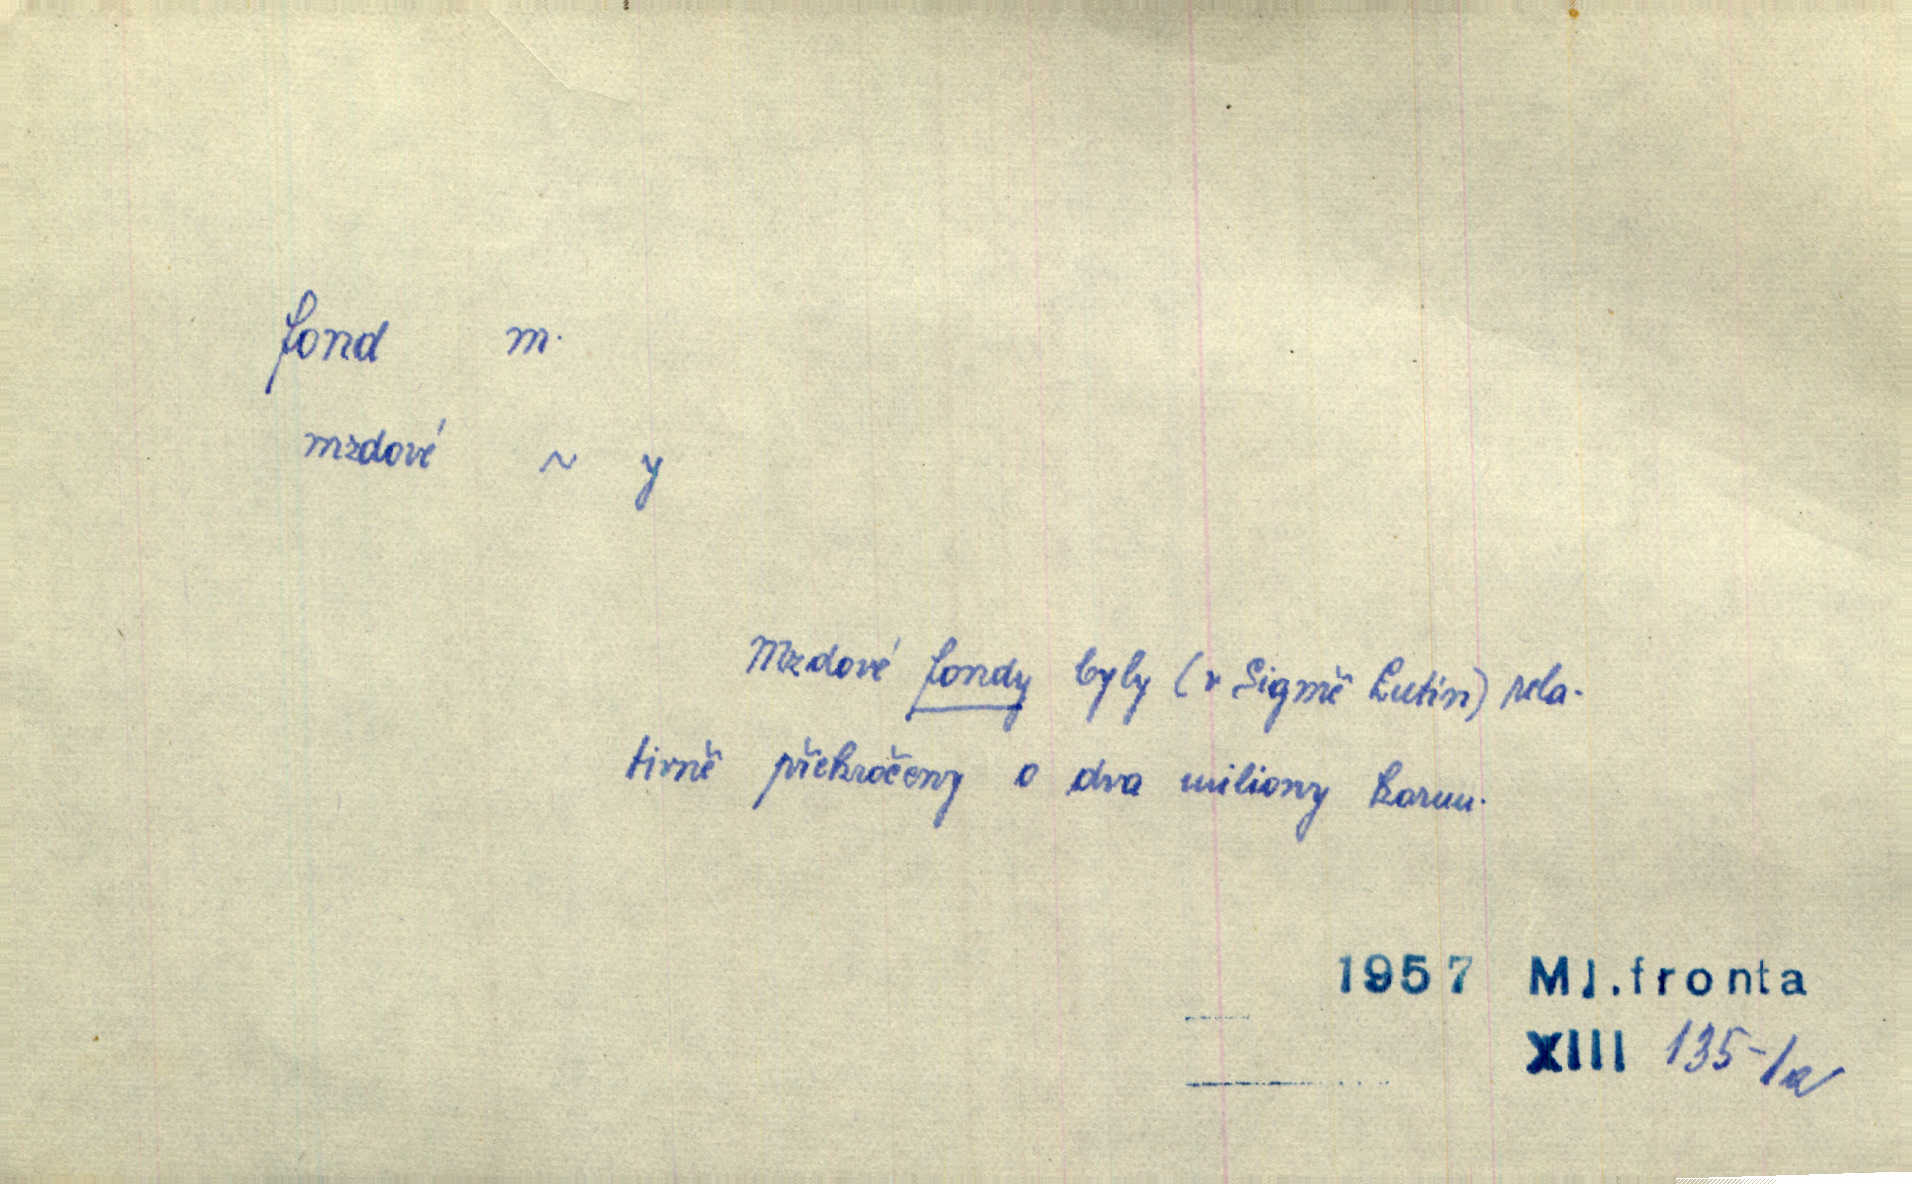 fond m.
mzdové ~ y
Mzdové fondy byly (v Sigmě Lutín) rela-
tivně překročeny o dva miliony korun.
1957 Ml.fronta
XIII 135-1a